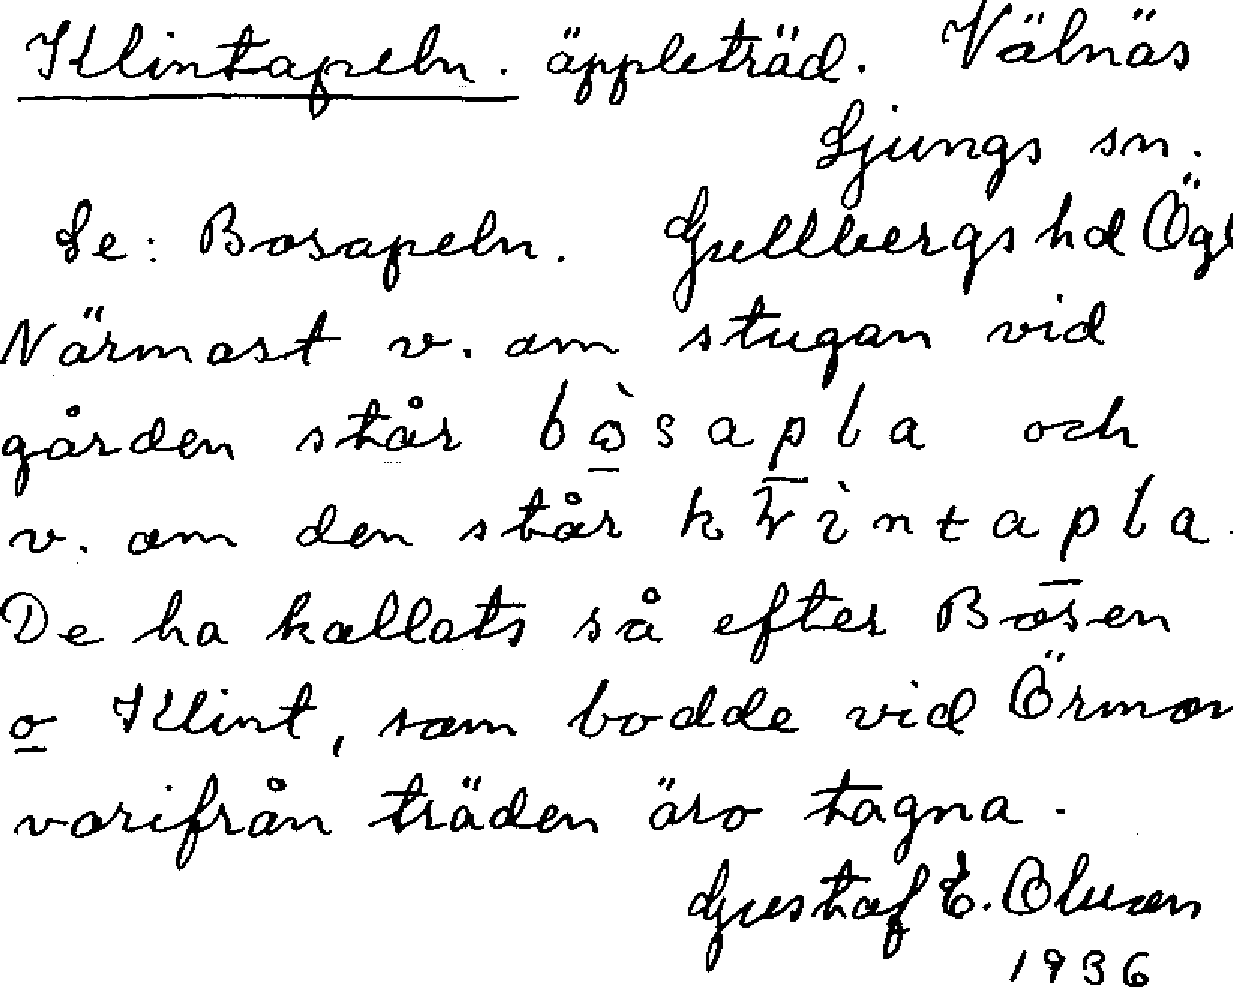 Klintapeln. äppleträd. Välnäs
Ljungs sn.
Se: Bosapeln. Gullbergs hd Ögl
Närmast v. om stugan vid
gården står bòsapla och
v. om den står klìntapla.
De ha kallats så efter Bosen
o Klint, som bodde vid Örmon
varifrån träden äro tagna.
Gustaf E. Oluson
1936